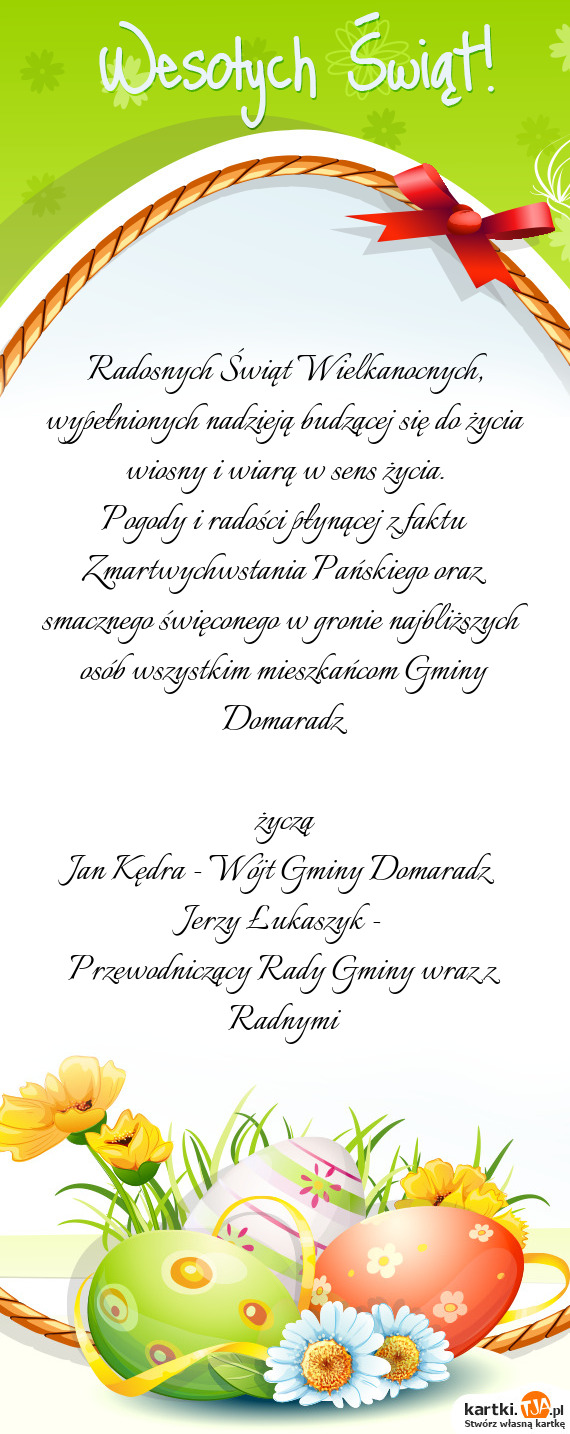 Wesołych Świąt!
Radosnych Świąt Wielkanocnych,
wypełnionych nadzieją budzącej się do życia
wiosny i wiarą w sens życia.
Pogody i radości płynącej z faktu
Zmartwychwstania Pańskiego oraz
smacznego święconego w gronie najbliższych
osób wszystkim mieszkańcom Gminy
Domaradz
życzą
Jan Kędra - Wójt Gminy Domaradz
Jerzy Łukaszyk -
Przewodniczący Rady Gminy wraz z
Radnymi
kartki.TJA.pl
Stwórz własną kartkę